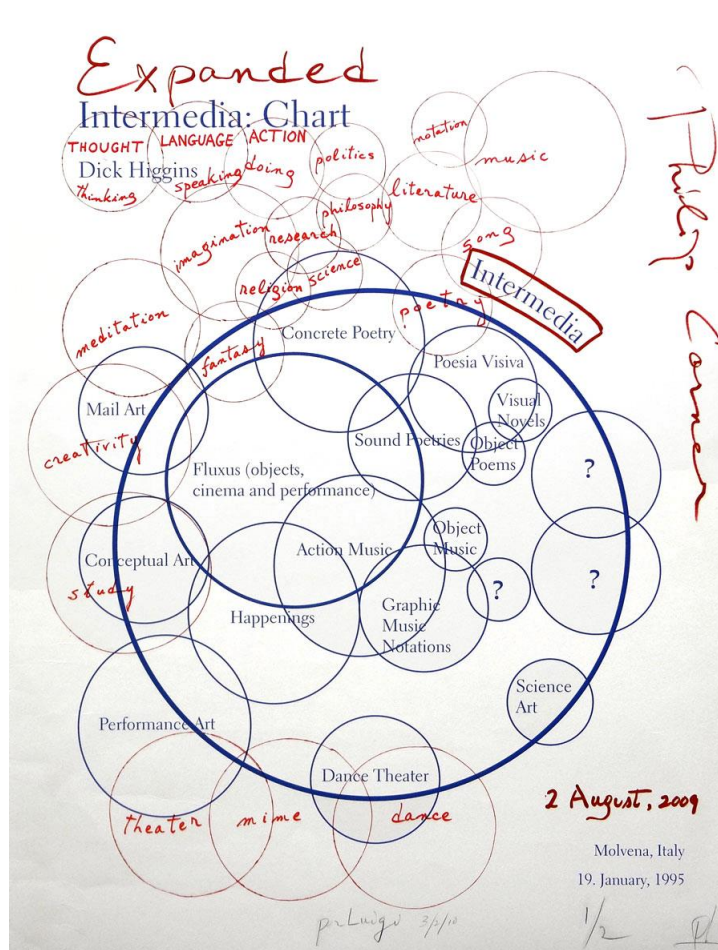 Expanded
Intermedia: Chart
THOUGHT LANGUAGE ACTION
Dick Higgins
thinking
speaking
doing
politics
notation
music
literature
philosophy
imagination
research
song
religion
science
poetry
Intermedia
meditation
fantasy
Concrete Poetry
Poesia Visiva
Mail Art
Visual
Novels
creativity
Sound Poetries
Object
Poems
Fluxus (objects,
cinema and performance)
?
Object
Music
Action Music
Conceptual Art
study
?
?
Happenings
Graphic
Music
Notations
Science
Art
Performance Art
Dance Theater
theater
mime
dance
2 August, 2009
Molvena, Italy
19. January, 1995
Philip Corner
pr Luigi 3/2/10
1/2